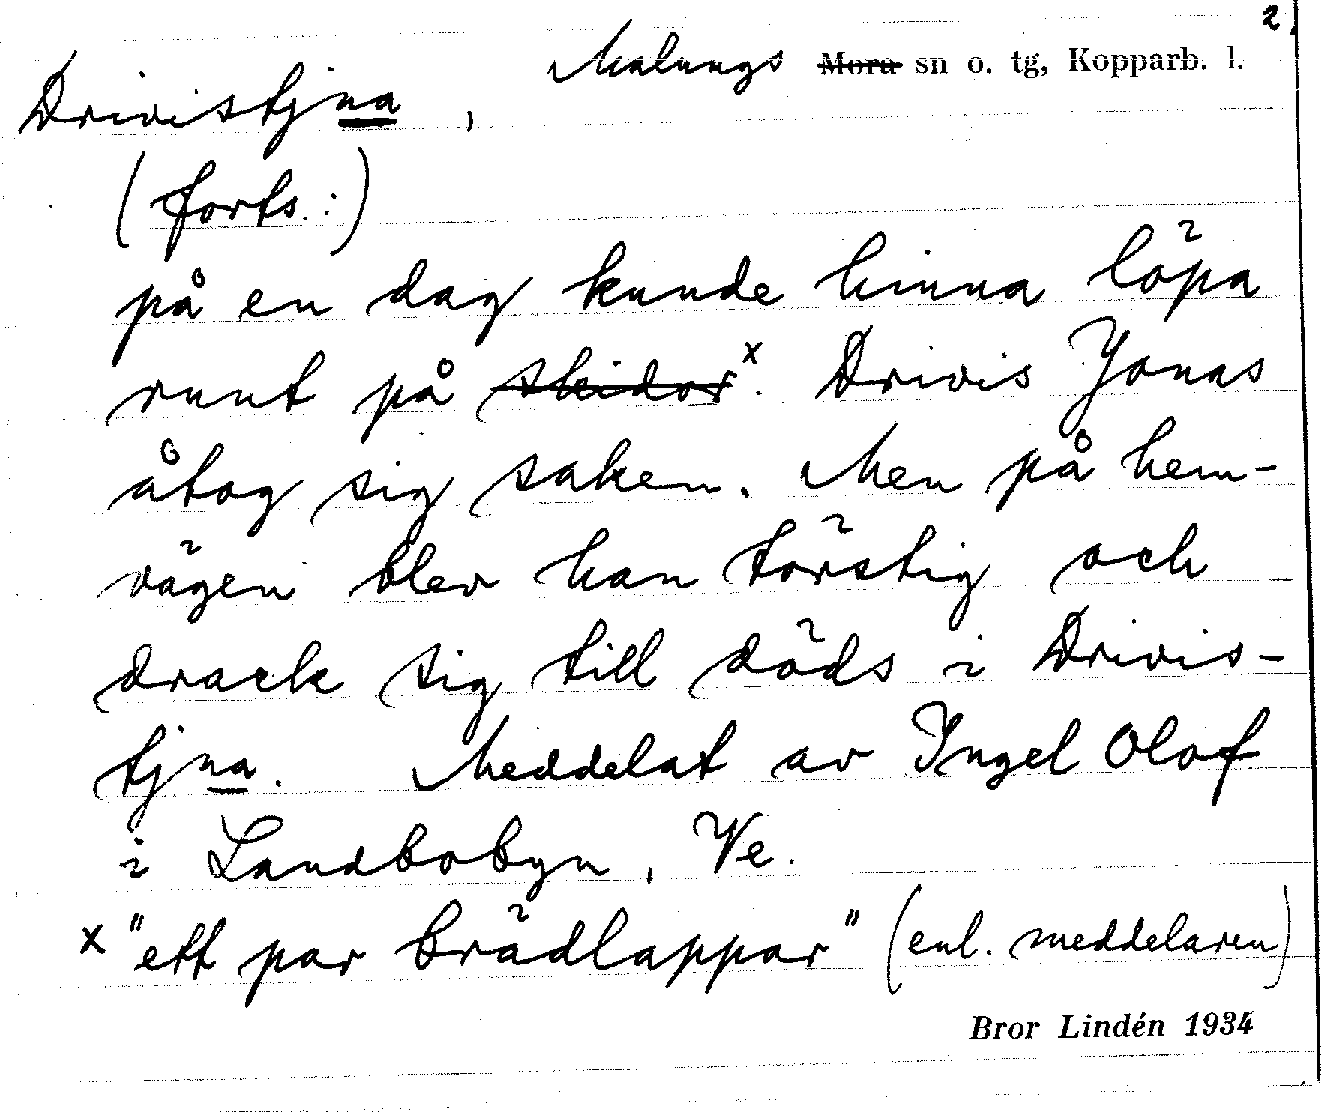 2.
Malungs ~~Mora~~ sn o. tg, Kopparb. l.
Drivistjna,
(forts.:)
på en dag kunde hinna löpa
runt på ~~skidor~~ x. Drivis Jonas
åtog sig saken. Men på hem-
vägen blev han törstig och
drack sig till döds i Drivis-
tjna. Meddelat av Ingel Olof
i Landbobyn, Ve.
x "ett par brädlappar" (enl. meddelaren)
Bror Lindén 1934